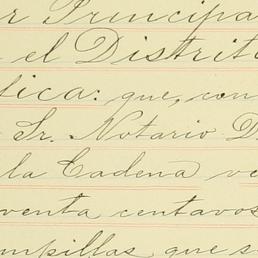 r Principa
el Distrit
tica: que, con
Sr. Notario D
la Cadena ve
venta centavos
mpillas que s